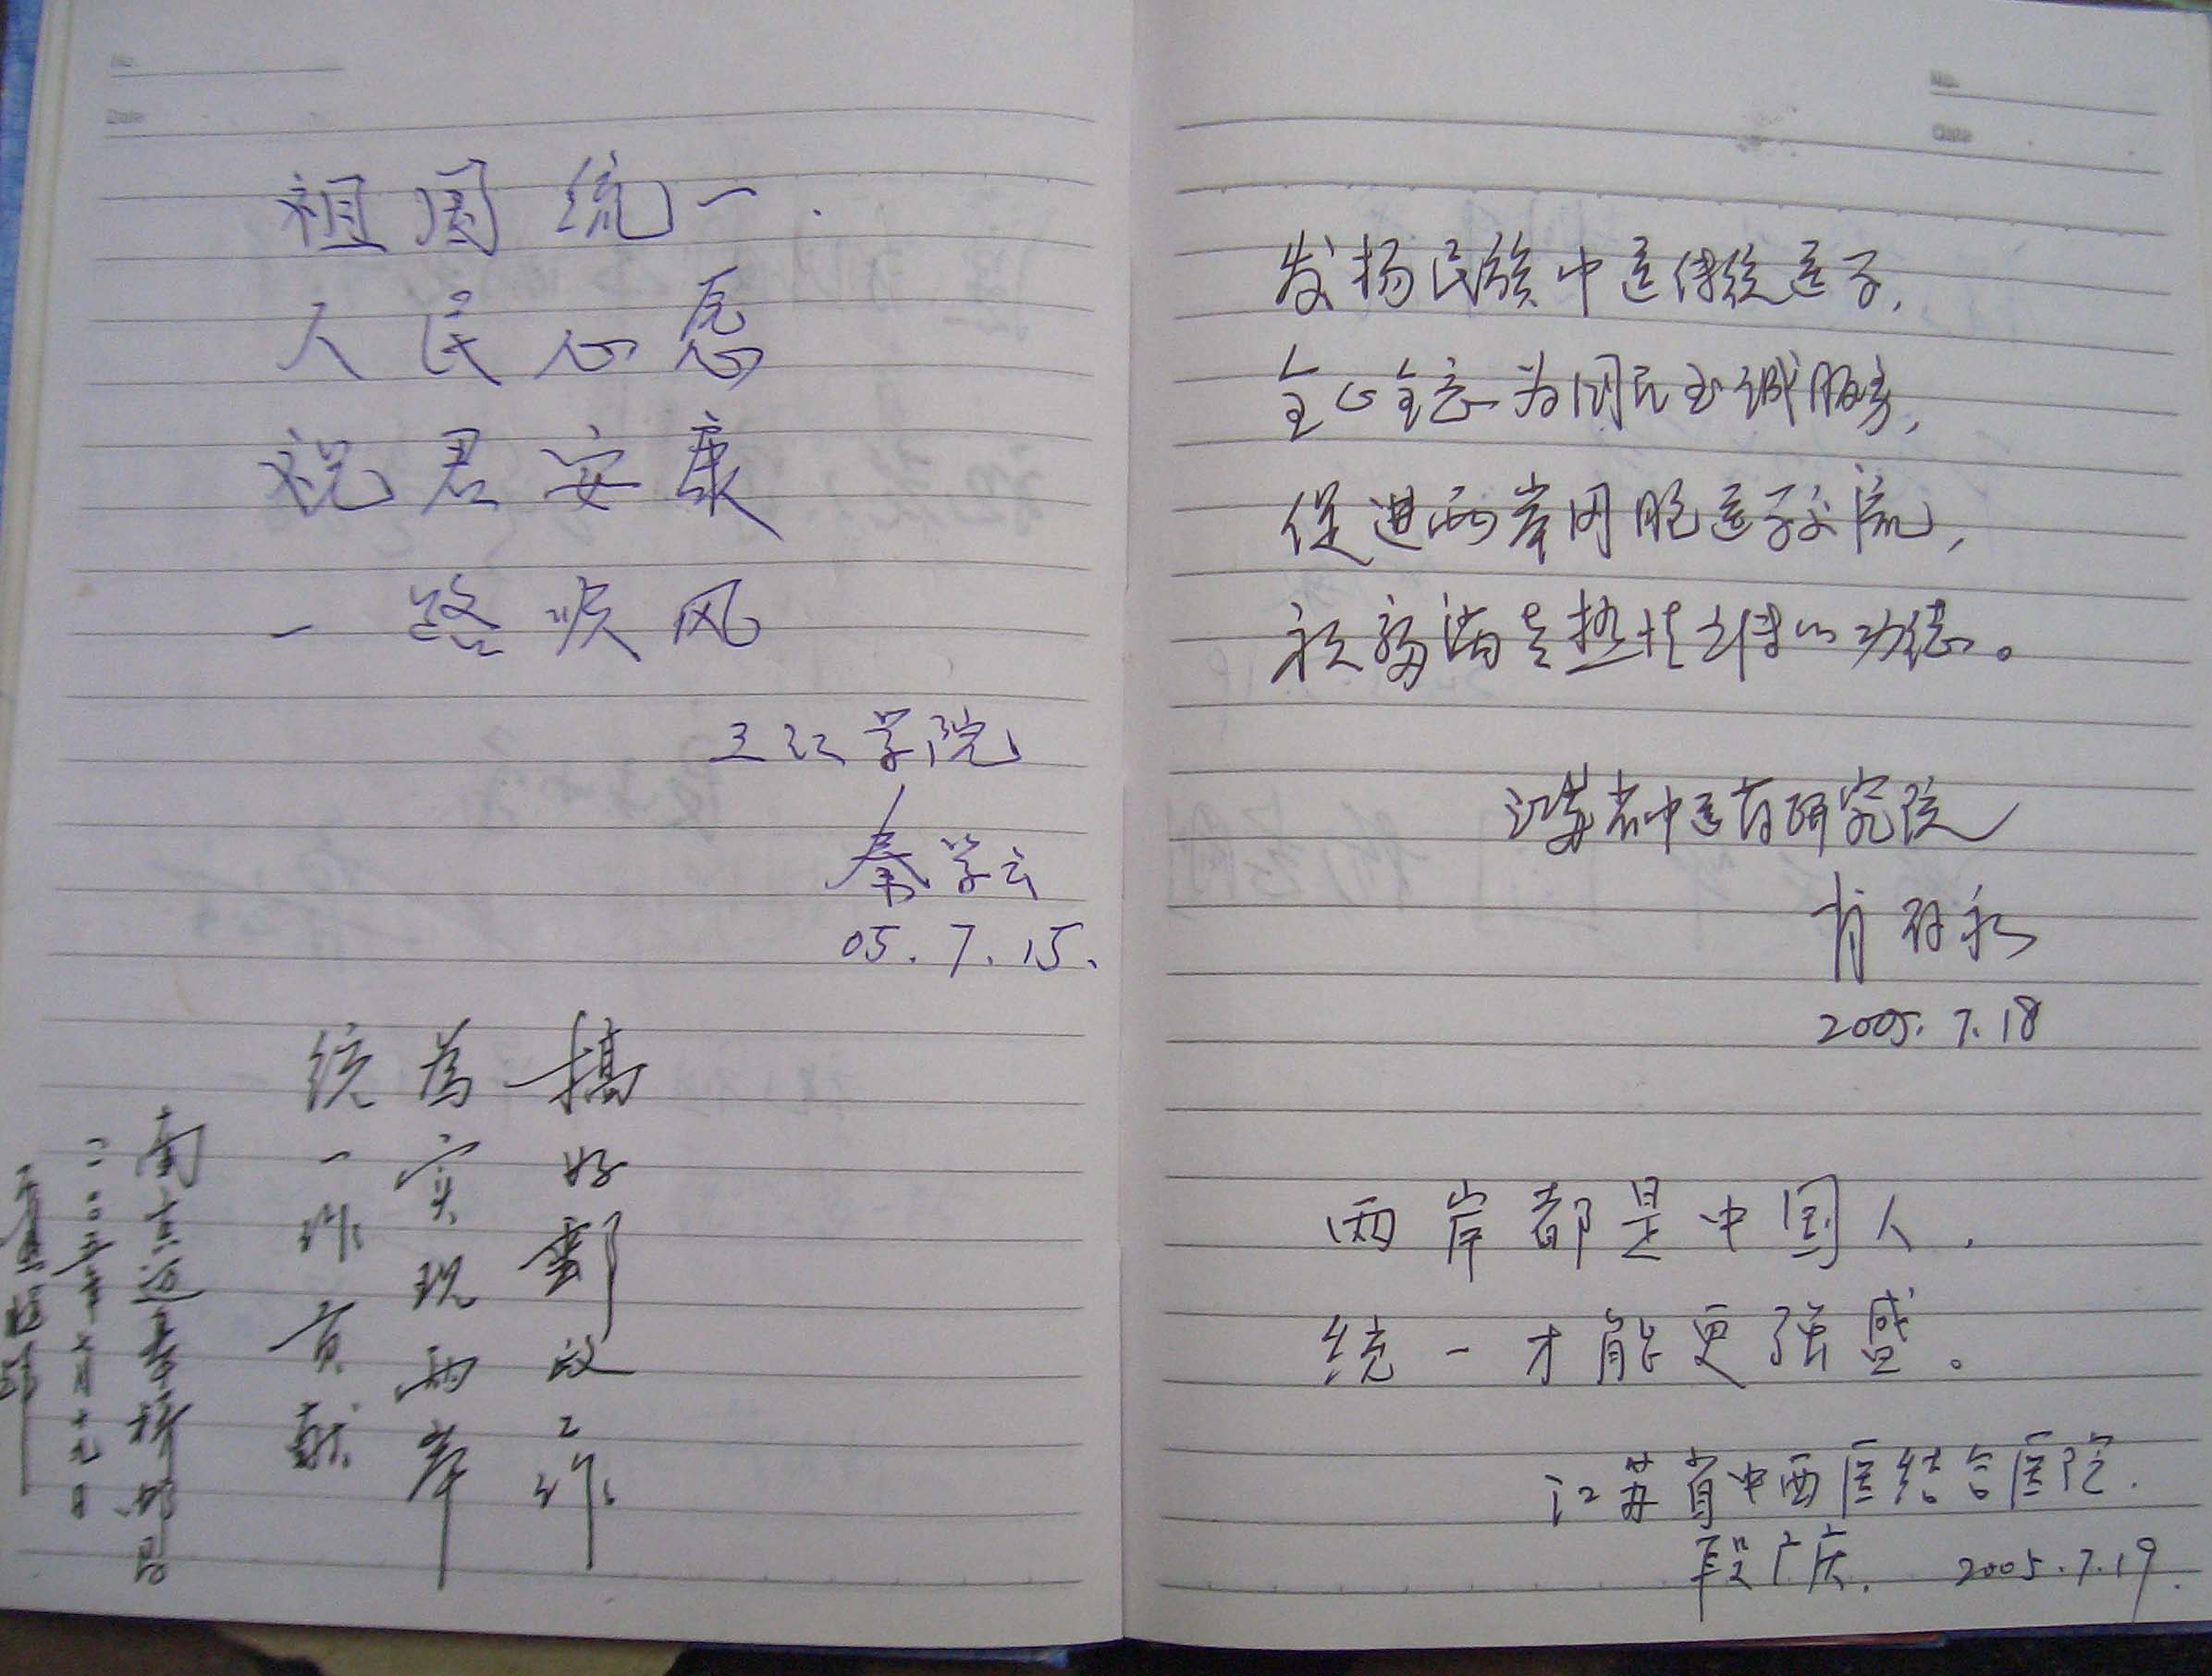 No.
Date
祖国统一.
人民心愿
祝君安康
一路顺风
三江学院
秦学云
05.7.15.
搞好邮政工作
为实现两岸
统一作贡献
南京
二〇〇五年七月十九日
No.
Date
发扬民族中医传统医学,
全心全意为国民至诚服务,
促进两岸同胞医学交流,
祝福满先热情之传的功德。
江苏省中医药研究院
肖
2005.7.18
两岸都是中国人,
统一才能更强盛。
江苏省中西医结合医院.
段广庆. 2005.7.19.